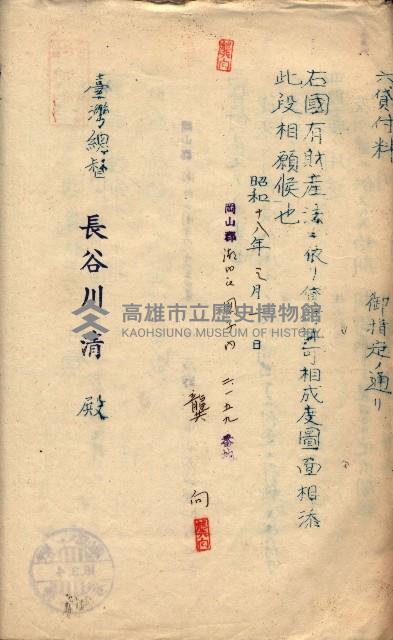 六貸付料
御指定ノ通リ
右國有財產法ニ依リ貸付許可相成度圖面相添
此段相願候也
昭和十八年三月 日
岡山郡湖內庄圍子內二一五九番地
龔 向
臺灣總督 長谷川清 殿
高雄市立歷史博物館
KAOHSIUNG MUSEUM OF HISTORY
18.3.4